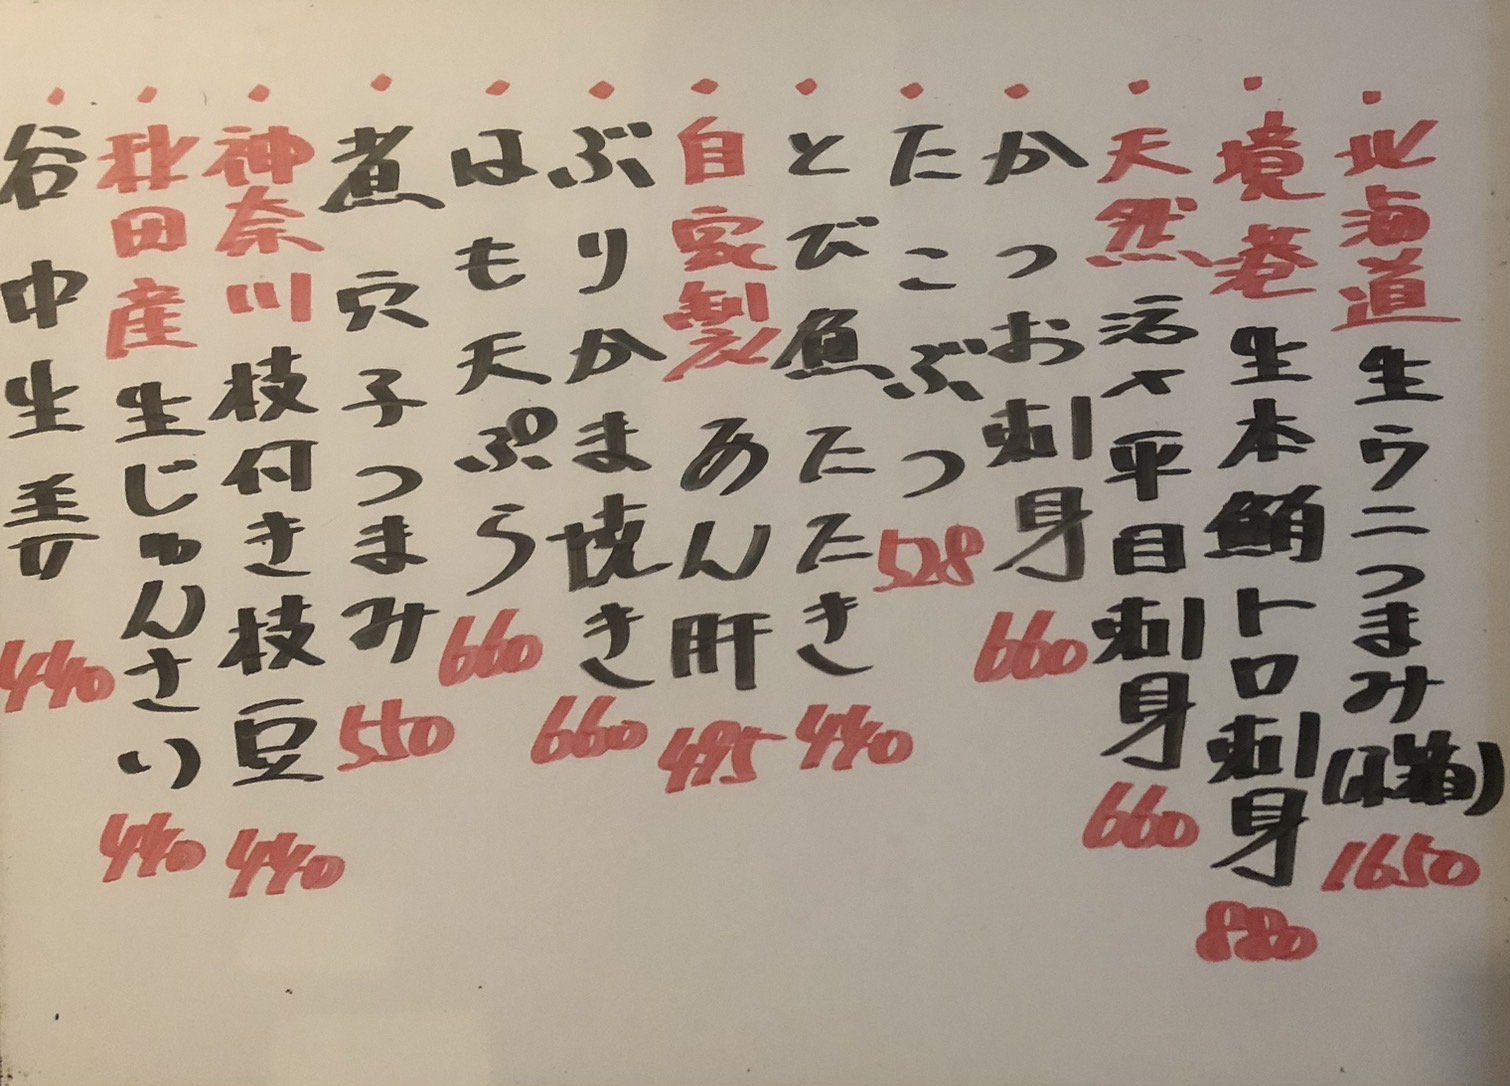 ・北海道生ウニつまみ(小箱) 1650
・境港生本鮪トロ刺身 880
・天然活〆平目刺身 660
・かつお刺身 660
・たこぶつ 528
・とび魚たたき 440
・自家製あん肝 495
・ぶりかま焼き 660
・はも天ぷら 660
・煮穴子つまみ 550
・神奈川枝付き枝豆 440
・秋田産生じゅんさい 440
・谷中生姜 440